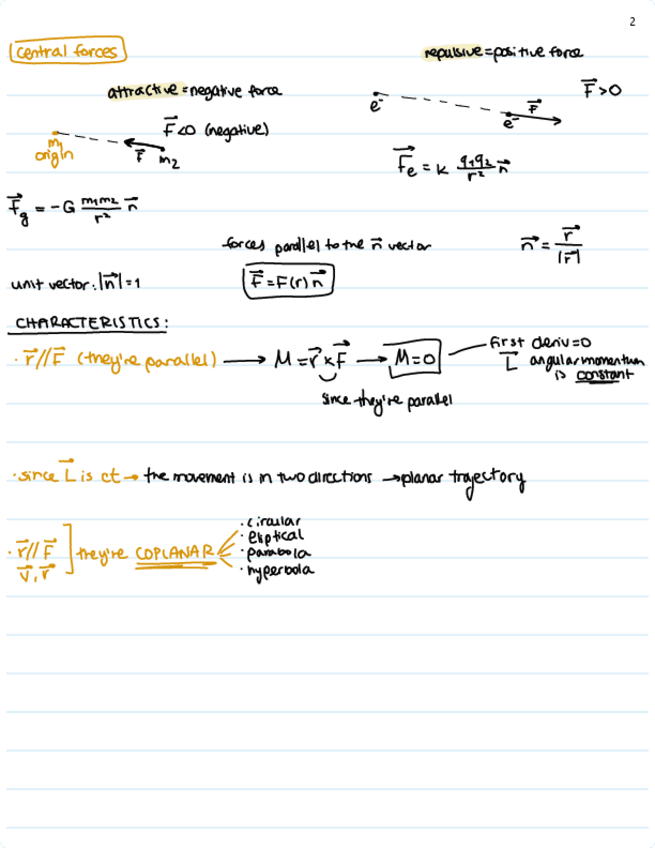 2
central forces
repulsive=positive force
attractive=negative force
F⃗>0
e⁻
F⃗
e⁻
F⃗<0 (negative)
m₁
origin
F⃗ m₂
F⃗e = K q₁q₂/r² n⃗
F⃗g = -G m₁m₂/r² n⃗
forces parallel to the n⃗ vector
n⃗ = r⃗/|r⃗|
unit vector: |n⃗|=1
F⃗=F(r)n⃗
CHARACTERISTICS:
· r⃗//F⃗ (they're parallel) → M=r⃗×F⃗ → M=0
first deriv=0
L⃗ angular momentum
is constant
since they're parallel
· since L⃗ is ct → the movement is in two directions → planar trajectory
· r⃗//F⃗
v⃗,r⃗
] they're COPLANAR
· circular
· eliptical
· parabola
· hyperbola